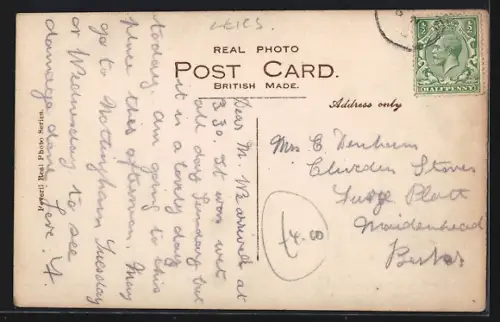 LEICS.
REAL PHOTO
POST CARD.
BRITISH MADE.
Address only
HALFPENNY
Dear M. We arrived at
8.30. It was wet
all day Sunday but
it is a lovely day
today. Am going to this
place this afternoon. May
go to Nottingham Tuesday
or Wednesday to see
damage done. Love. F
Mrs E. Denham
Cliveden Stores
Maidenhead
Berks
Real Photo Series